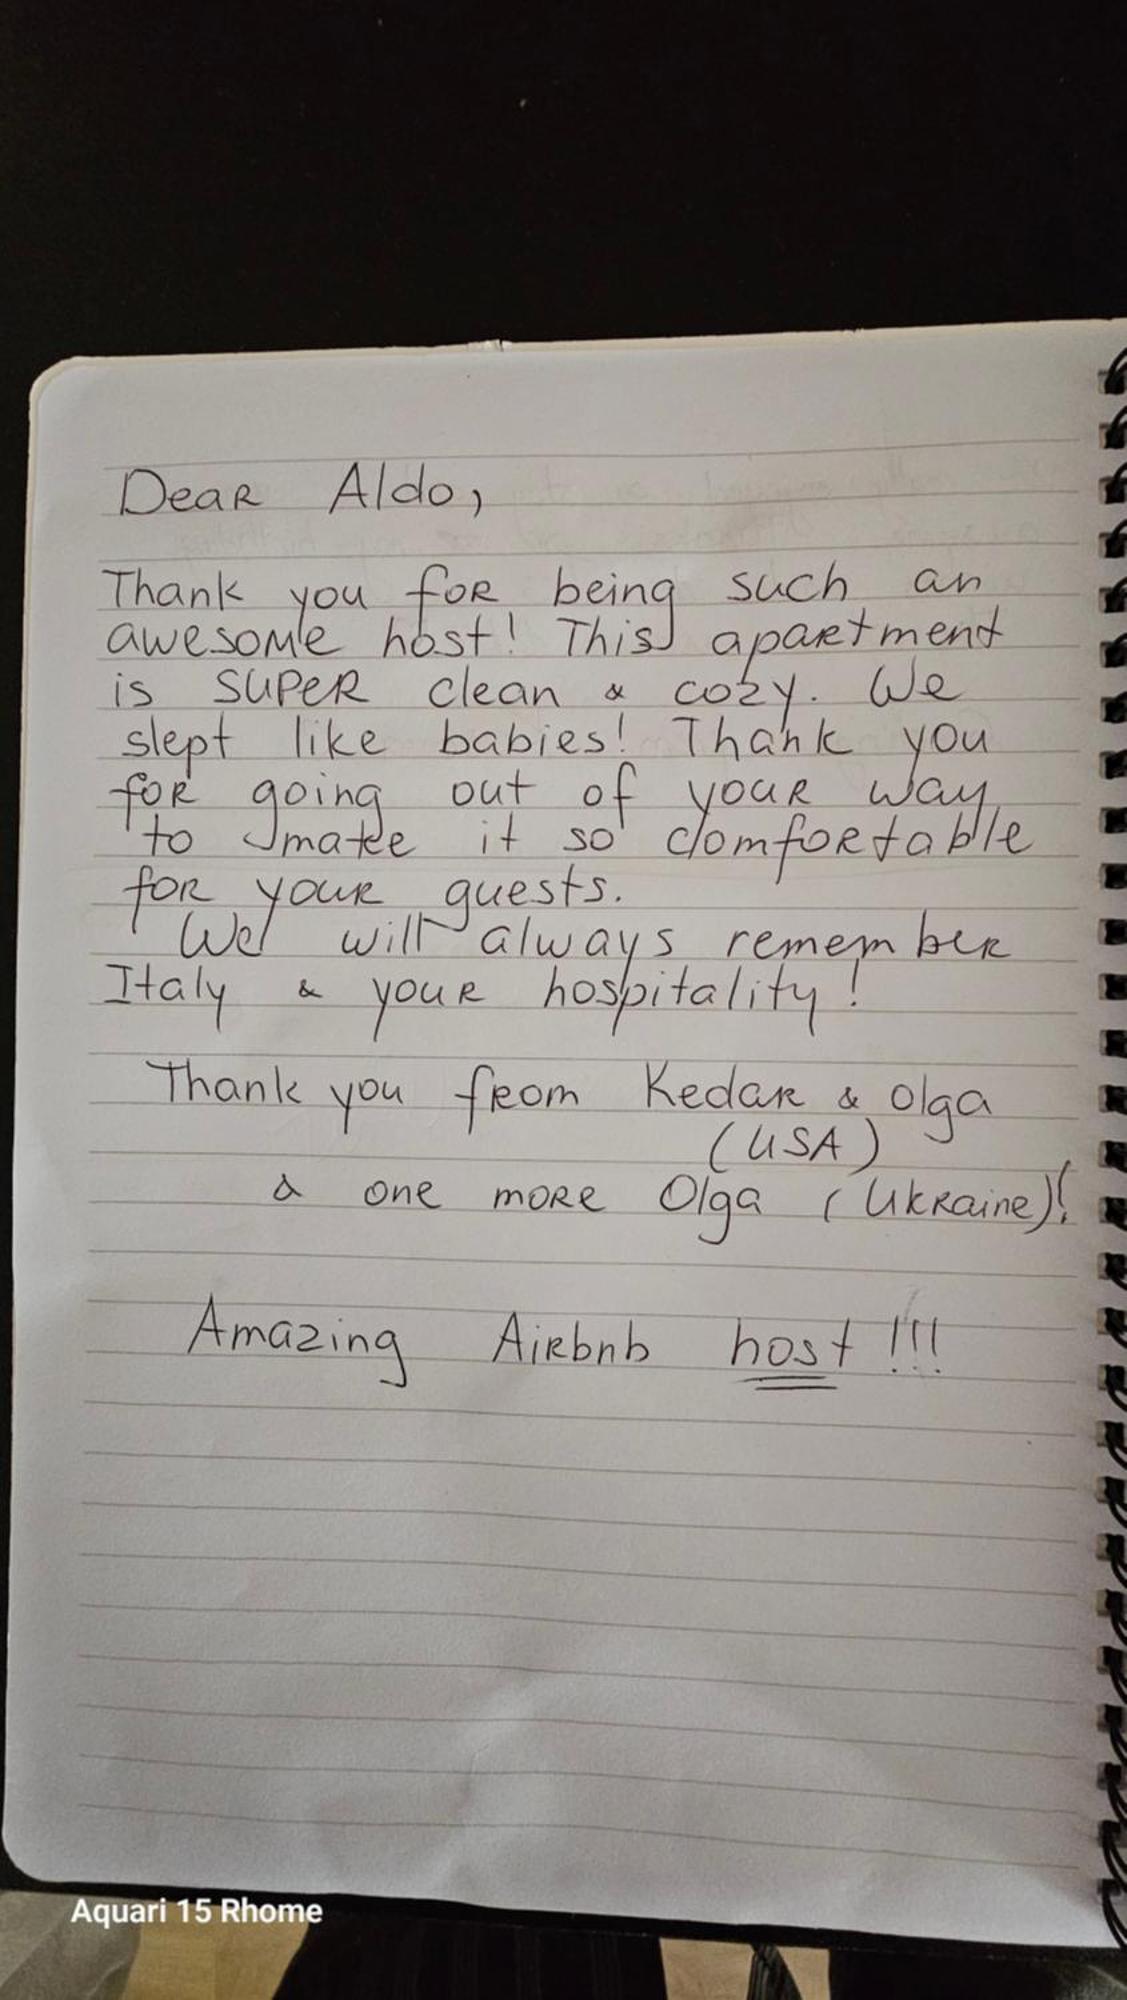 Dear Aldo,
Thank you for being such an
awesome host! This apartment
is SUPER clean & cozy. We
slept like babies! Thank you
for going out of your way
to make it so comfortable
for your guests.
We will always remember
Italy & your hospitality!
Thank you from Kedar & Olga
(USA)
& one more Olga (Ukraine)!
Amazing Airbnb host!!!
Aquari 15 Rhome